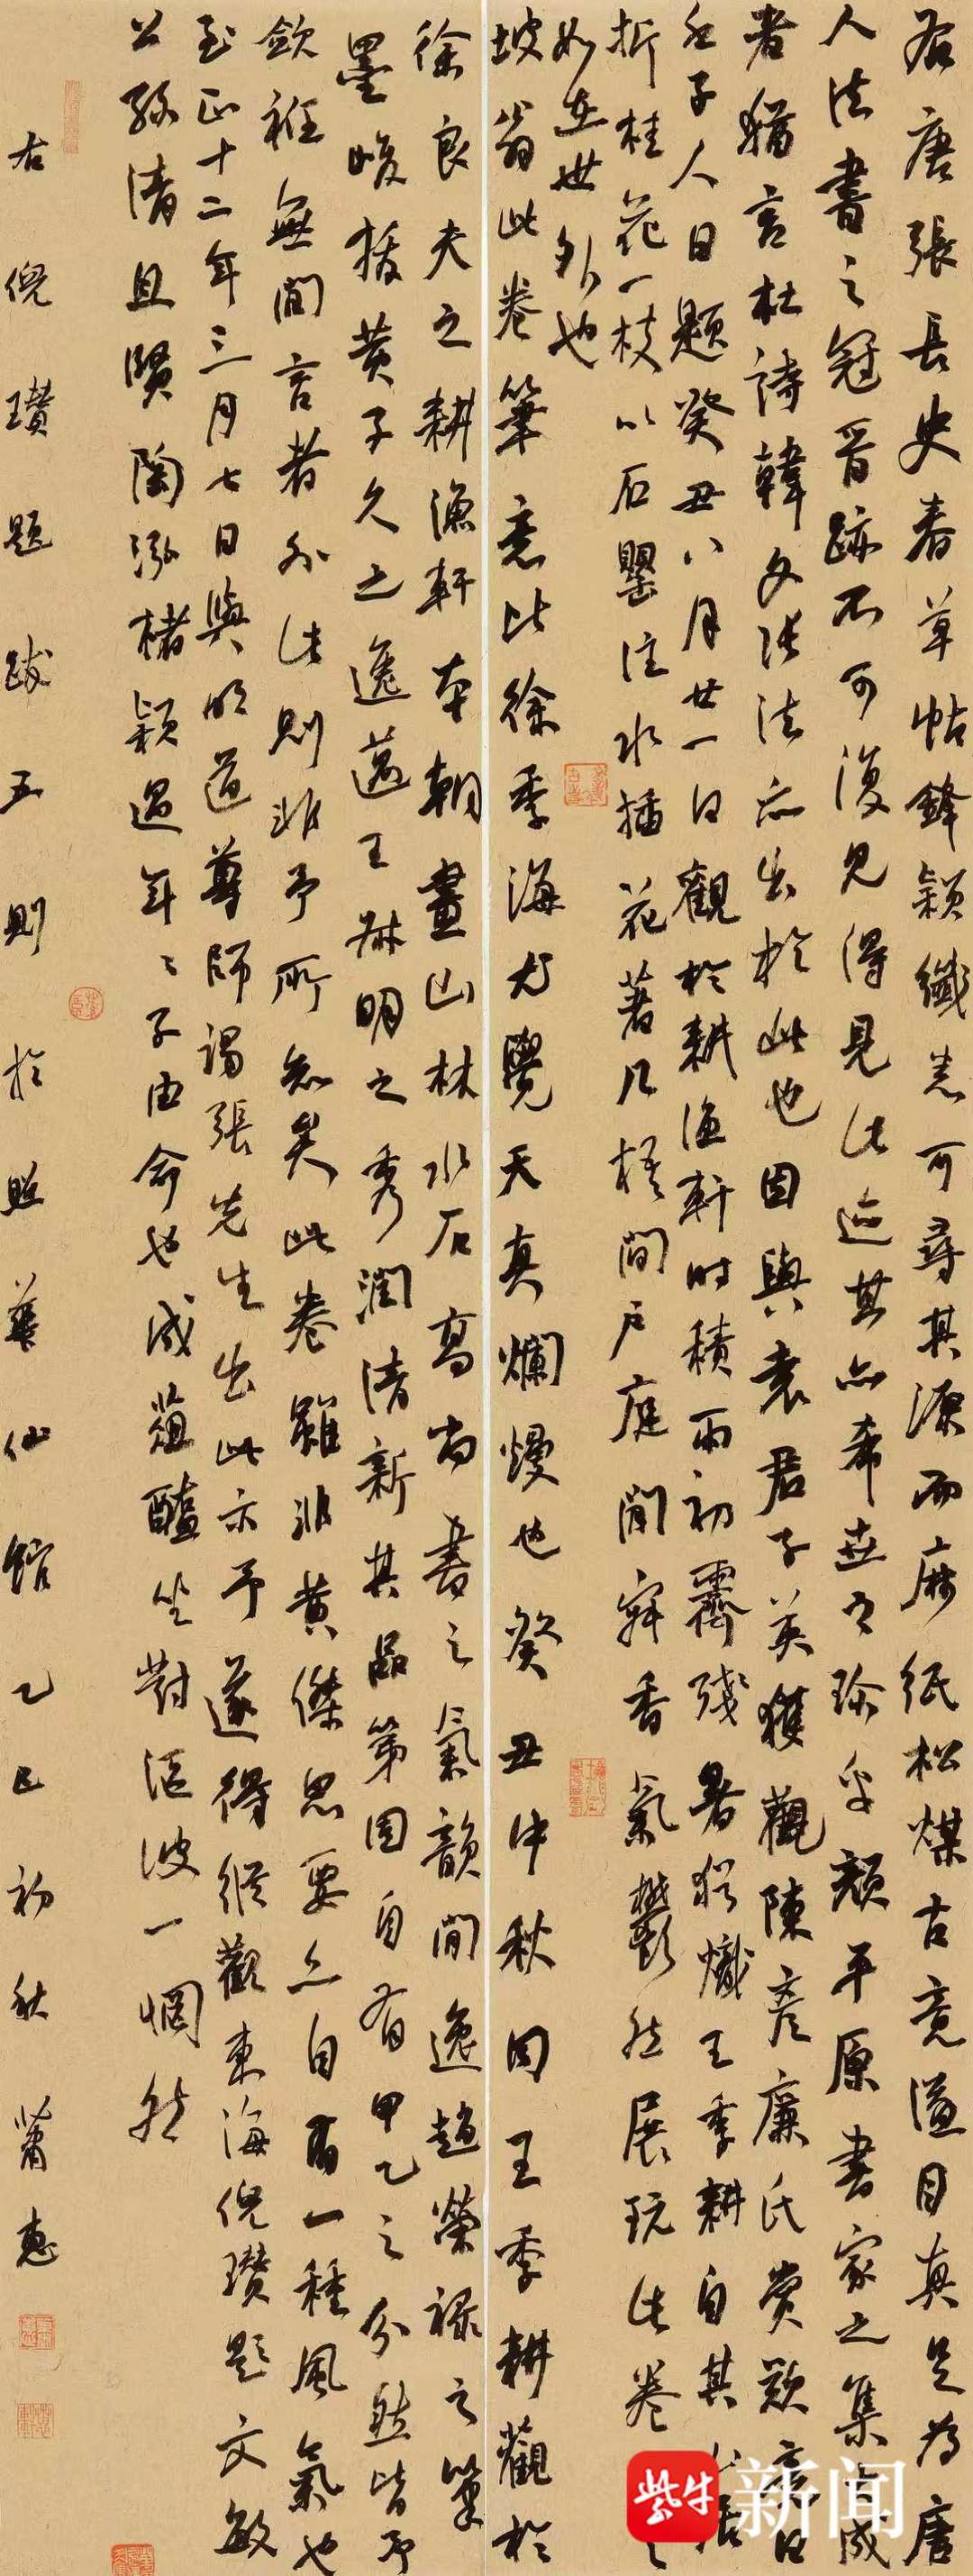 右唐張長史春草帖鋒穎纖悉可尋其源而麻紙松煤古意溢目真足為唐
人法書之冠晉跡不可復見得見此迹其亦希世之珍乎顏平原書家之集大成
者猶言杜詩韓文張法亦出於此也因與袁君子英獲觀陳彥廉氏賞歎竟日
壬子人日題癸丑八月廿一日觀於耕漁軒時積雨初霽殘暑猶熾王季耕自其山居
折桂花一枝以石罌注水插花著几格間戶庭閒寂香氣鬱然展玩此卷
如在世外也
坡翁此卷筆意比徐季海尤覺天真爛熳也癸丑中秋同王季耕觀於
徐良夫之耕漁軒本朝畫山林水石高尚書之氣韻閒逸趙榮祿之筆
墨峻拔黃子久之逸邁王叔明之秀潤清新其品第固自有甲乙之分然皆予
斂衽無間言者外此則非予所知矣此卷雖非黃傑思要亦自有一種風氣也
至正十二年三月七日與明道尊師謁張先生出此示予遂得縱觀東海倪瓚題文敏
公孫清且賢陶泓楮穎過年年子由命也成葅醢坐對滄波一惘然
右倪瓚題跋五則於照華仙館乙巳初秋蕭惠
紫牛新闻